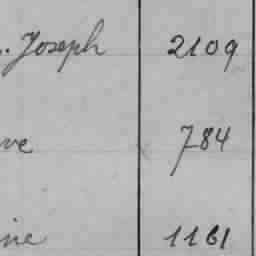 . Joseph 2109
ve 784
ine 1161